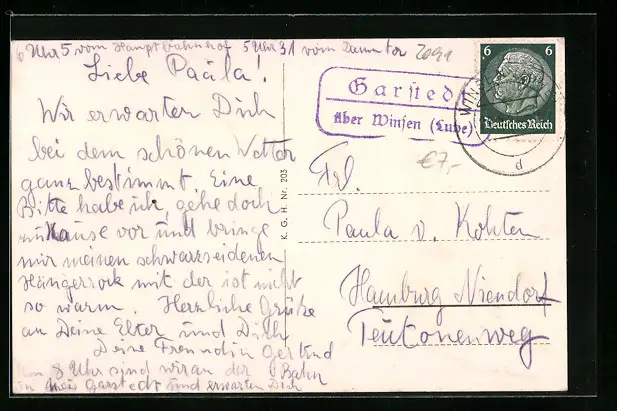 6 Uhr 5 vom Hauptbahnhof 5 Uhr 31 vom Dammtor
Liebe Paula!
Wir erwarten Dich
bei dem schönen Wetter
ganz bestimmt. Eine
Bitte habe ich, gehe doch
zuhause vor und bringe
mir meinen schwarzseidenen
Hängerrock mit der ist nicht
so warm. Herzliche Grüße
an Deine Elter und Dich
Deine Freundin Gertrud
8 Uhr sind wir an der Bahn
in Garstedt und erwarten Dich
K. G. H. Nr. 203
Garstedt
über Winsen (Luhe)
6 6
Deutsches Reich
d
€7,-
Frl.
Paula v. Kohten
Hamburg Niendorf
Teutonenweg